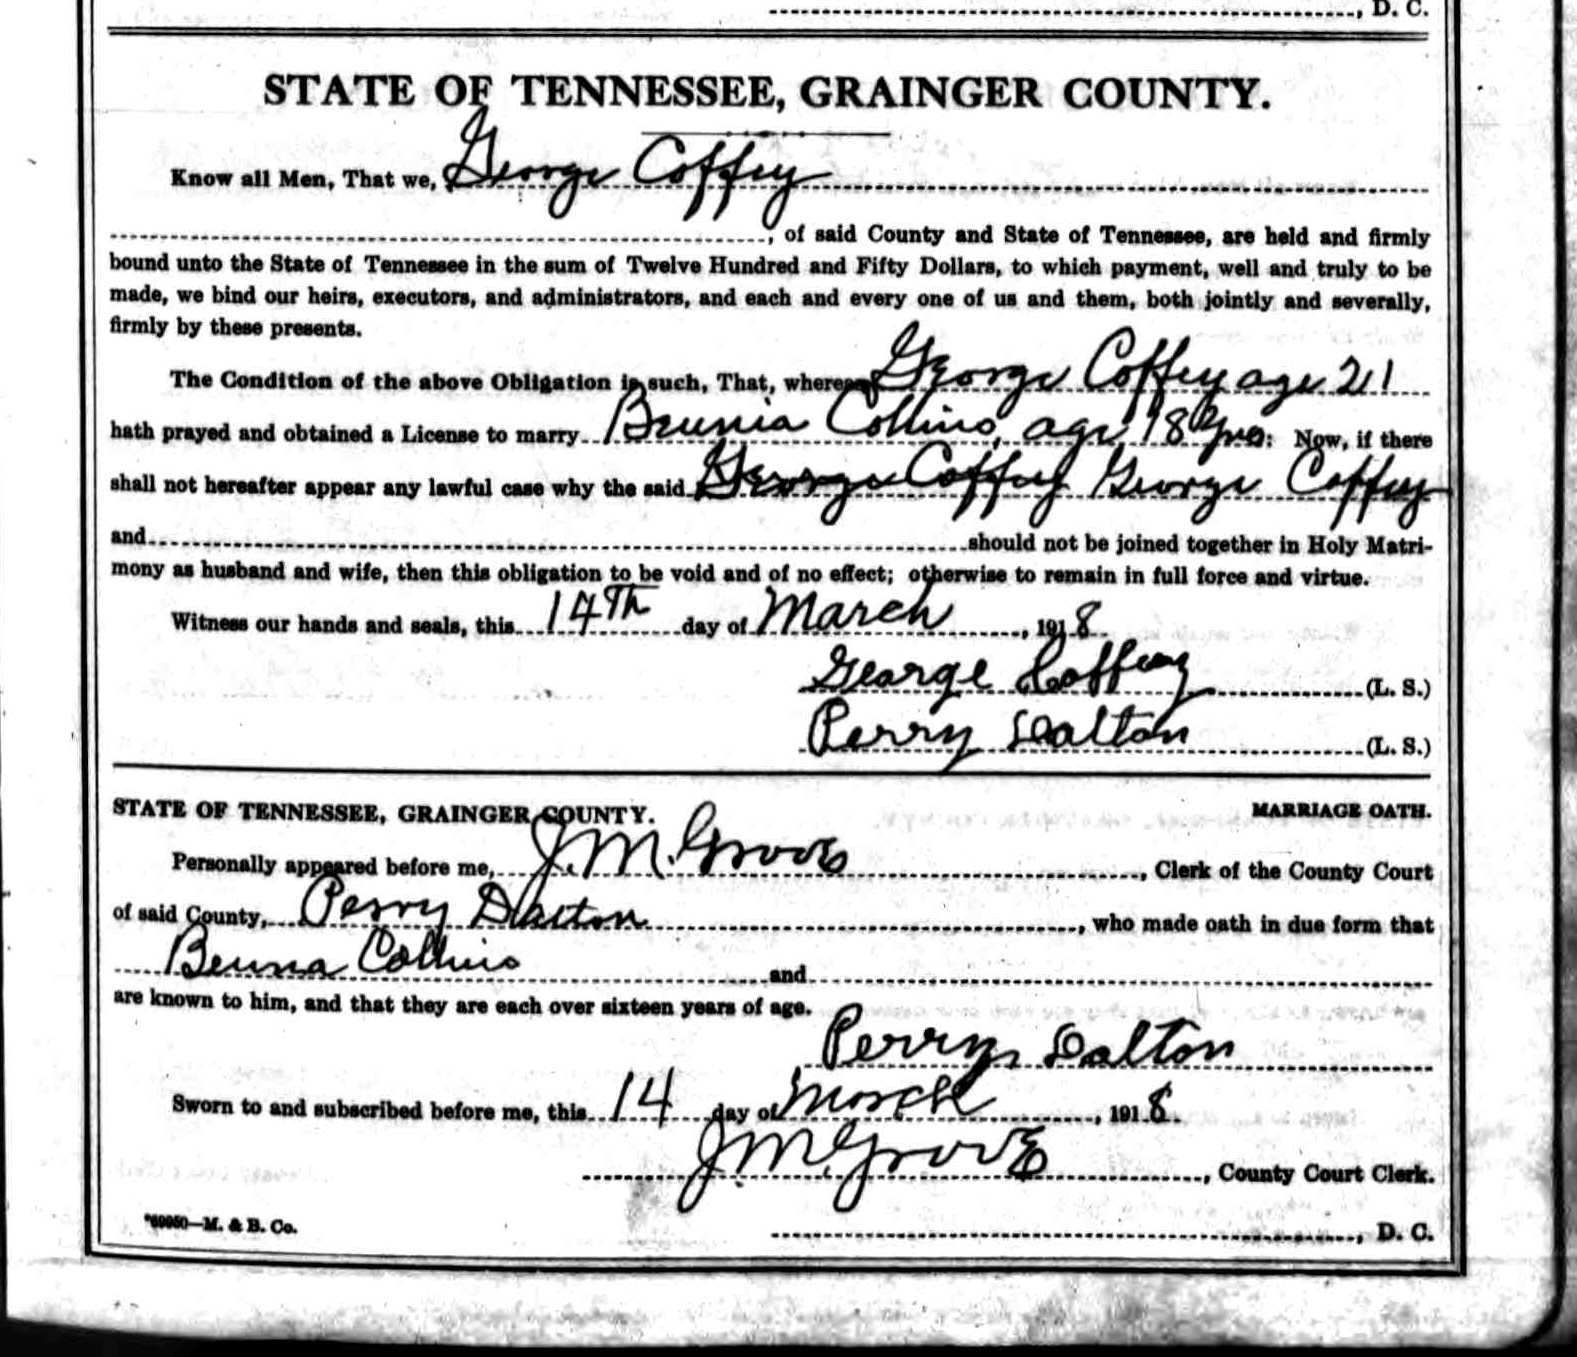 , D. C.
STATE OF TENNESSEE, GRAINGER COUNTY.
Know all Men, That we, George Coffey
, of said County and State of Tennessee, are held and firmly
bound unto the State of Tennessee in the sum of Twelve Hundred and Fifty Dollars, to which payment, well and truly to be
made, we bind our heirs, executors, and administrators, and each and every one of us and them, both jointly and severally,
firmly by these presents.
The Condition of the above Obligation is such, That, whereas George Coffey age 21
hath prayed and obtained a License to marry Collins, age 18 yrs: Now, if there
shall not hereafter appear any lawful case why the said George Coffey George Coffey
and should not be joined together in Holy Matri-
mony as husband and wife, then this obligation to be void and of no effect; otherwise to remain in full force and virtue.
Witness our hands and seals, this 14th day of March, 1918
George Coffey (L. S.)
Perry Dalton (L. S.)
STATE OF TENNESSEE, GRAINGER COUNTY. MARRIAGE OATH.
Personally appeared before me, J. M. Grove, Clerk of the County Court
of said County, Perry Dalton, who made oath in due form that
Collins and
are known to him, and that they are each over sixteen years of age.
Perry Dalton
Sworn to and subscribed before me, this 14 day of March, 1918
J. M. Grove, County Court Clerk.
M. & B. Co. , D. C.